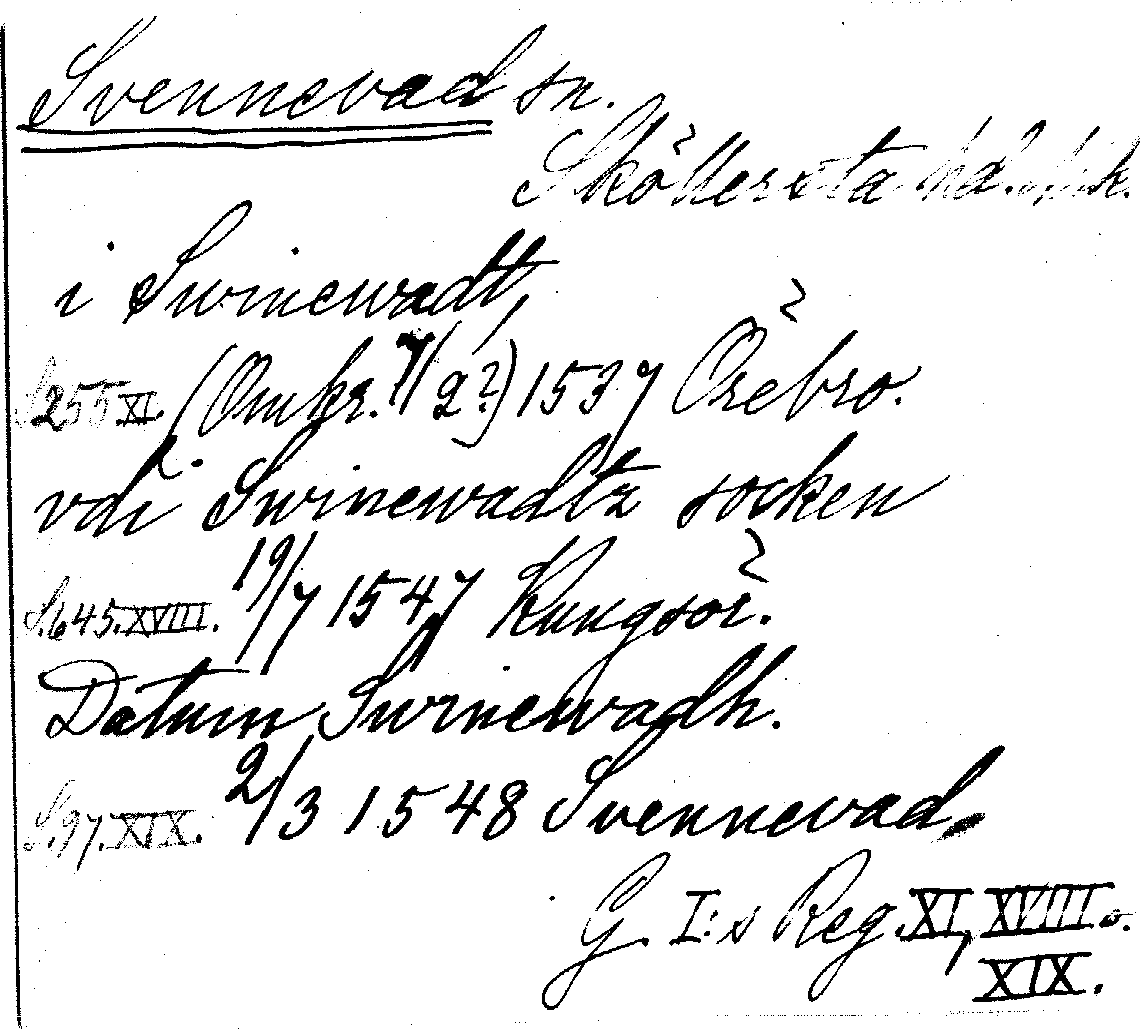 Svennevad sn.
Sköllersta hd. Närk.
i Swinewadt,
S. 255 XI. (Omkr. 7/2?) 1537 Örebro.
vdi Swinewadtz socken
S. 645. XVIII. 19/7 1547 Kungsör.
Datum Swinewadh.
S. 97. XIX. 2/3 1548 Svennevad.
G. I:s Reg. XI, XVIII o.
XIX.